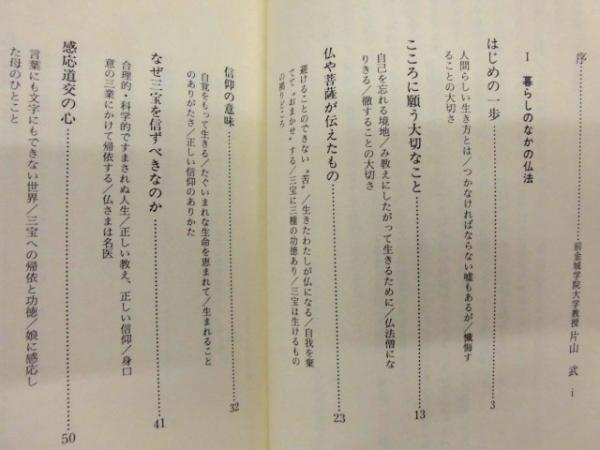 序……前金城学院大学教授 片山 武 i
I 暮らしのなかの仏法
はじめの一歩……3
人間らしい生き方とは/つかなければならない嘘もあるが/懺悔す
ることの大切さ
こころに願う大切なこと……13
自己を忘れる境地/み教えにしたがって生きるために/仏法僧にな
りきる/徹することの大切さ
仏や菩薩が伝えたもの……23
避けることのできない〝苦〟/生きたわたしが仏になる/自我を棄
てて〝おまかせ〟する/三宝に三種の功徳あり/三宝は生けるもの
の拠りどころ
信仰の意味……32
自覚をもって生きる/たぐいまれな生命を恵まれて/生まれること
のありがたさ/正しい信仰のありかた
なぜ三宝を信ずべきなのか……41
合理的・科学的ですまされぬ人生/正しい教え、正しい信仰/身口
意の三業にかけて帰依する/仏さまは名医
感応道交の心……50
言葉にも文字にもできない世界/三宝への帰依と功徳/娘に感応し
た母のひとこと